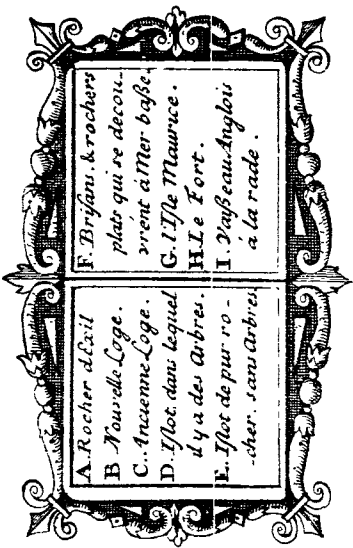 A Rocher d'Exil
B Nouvelle Loge.
C. Ancienne Loge.
D. Islot dans lequel
il y a des Arbres.
E. Islot de pur ro-
-cher. sans Arbres
F. Brisans & rochers
plats qui se decou-
vrent á Mer baße.
G. l'Isle Maurice.
H. Le Fort.
I Vaißeau Anglois
á la rade.